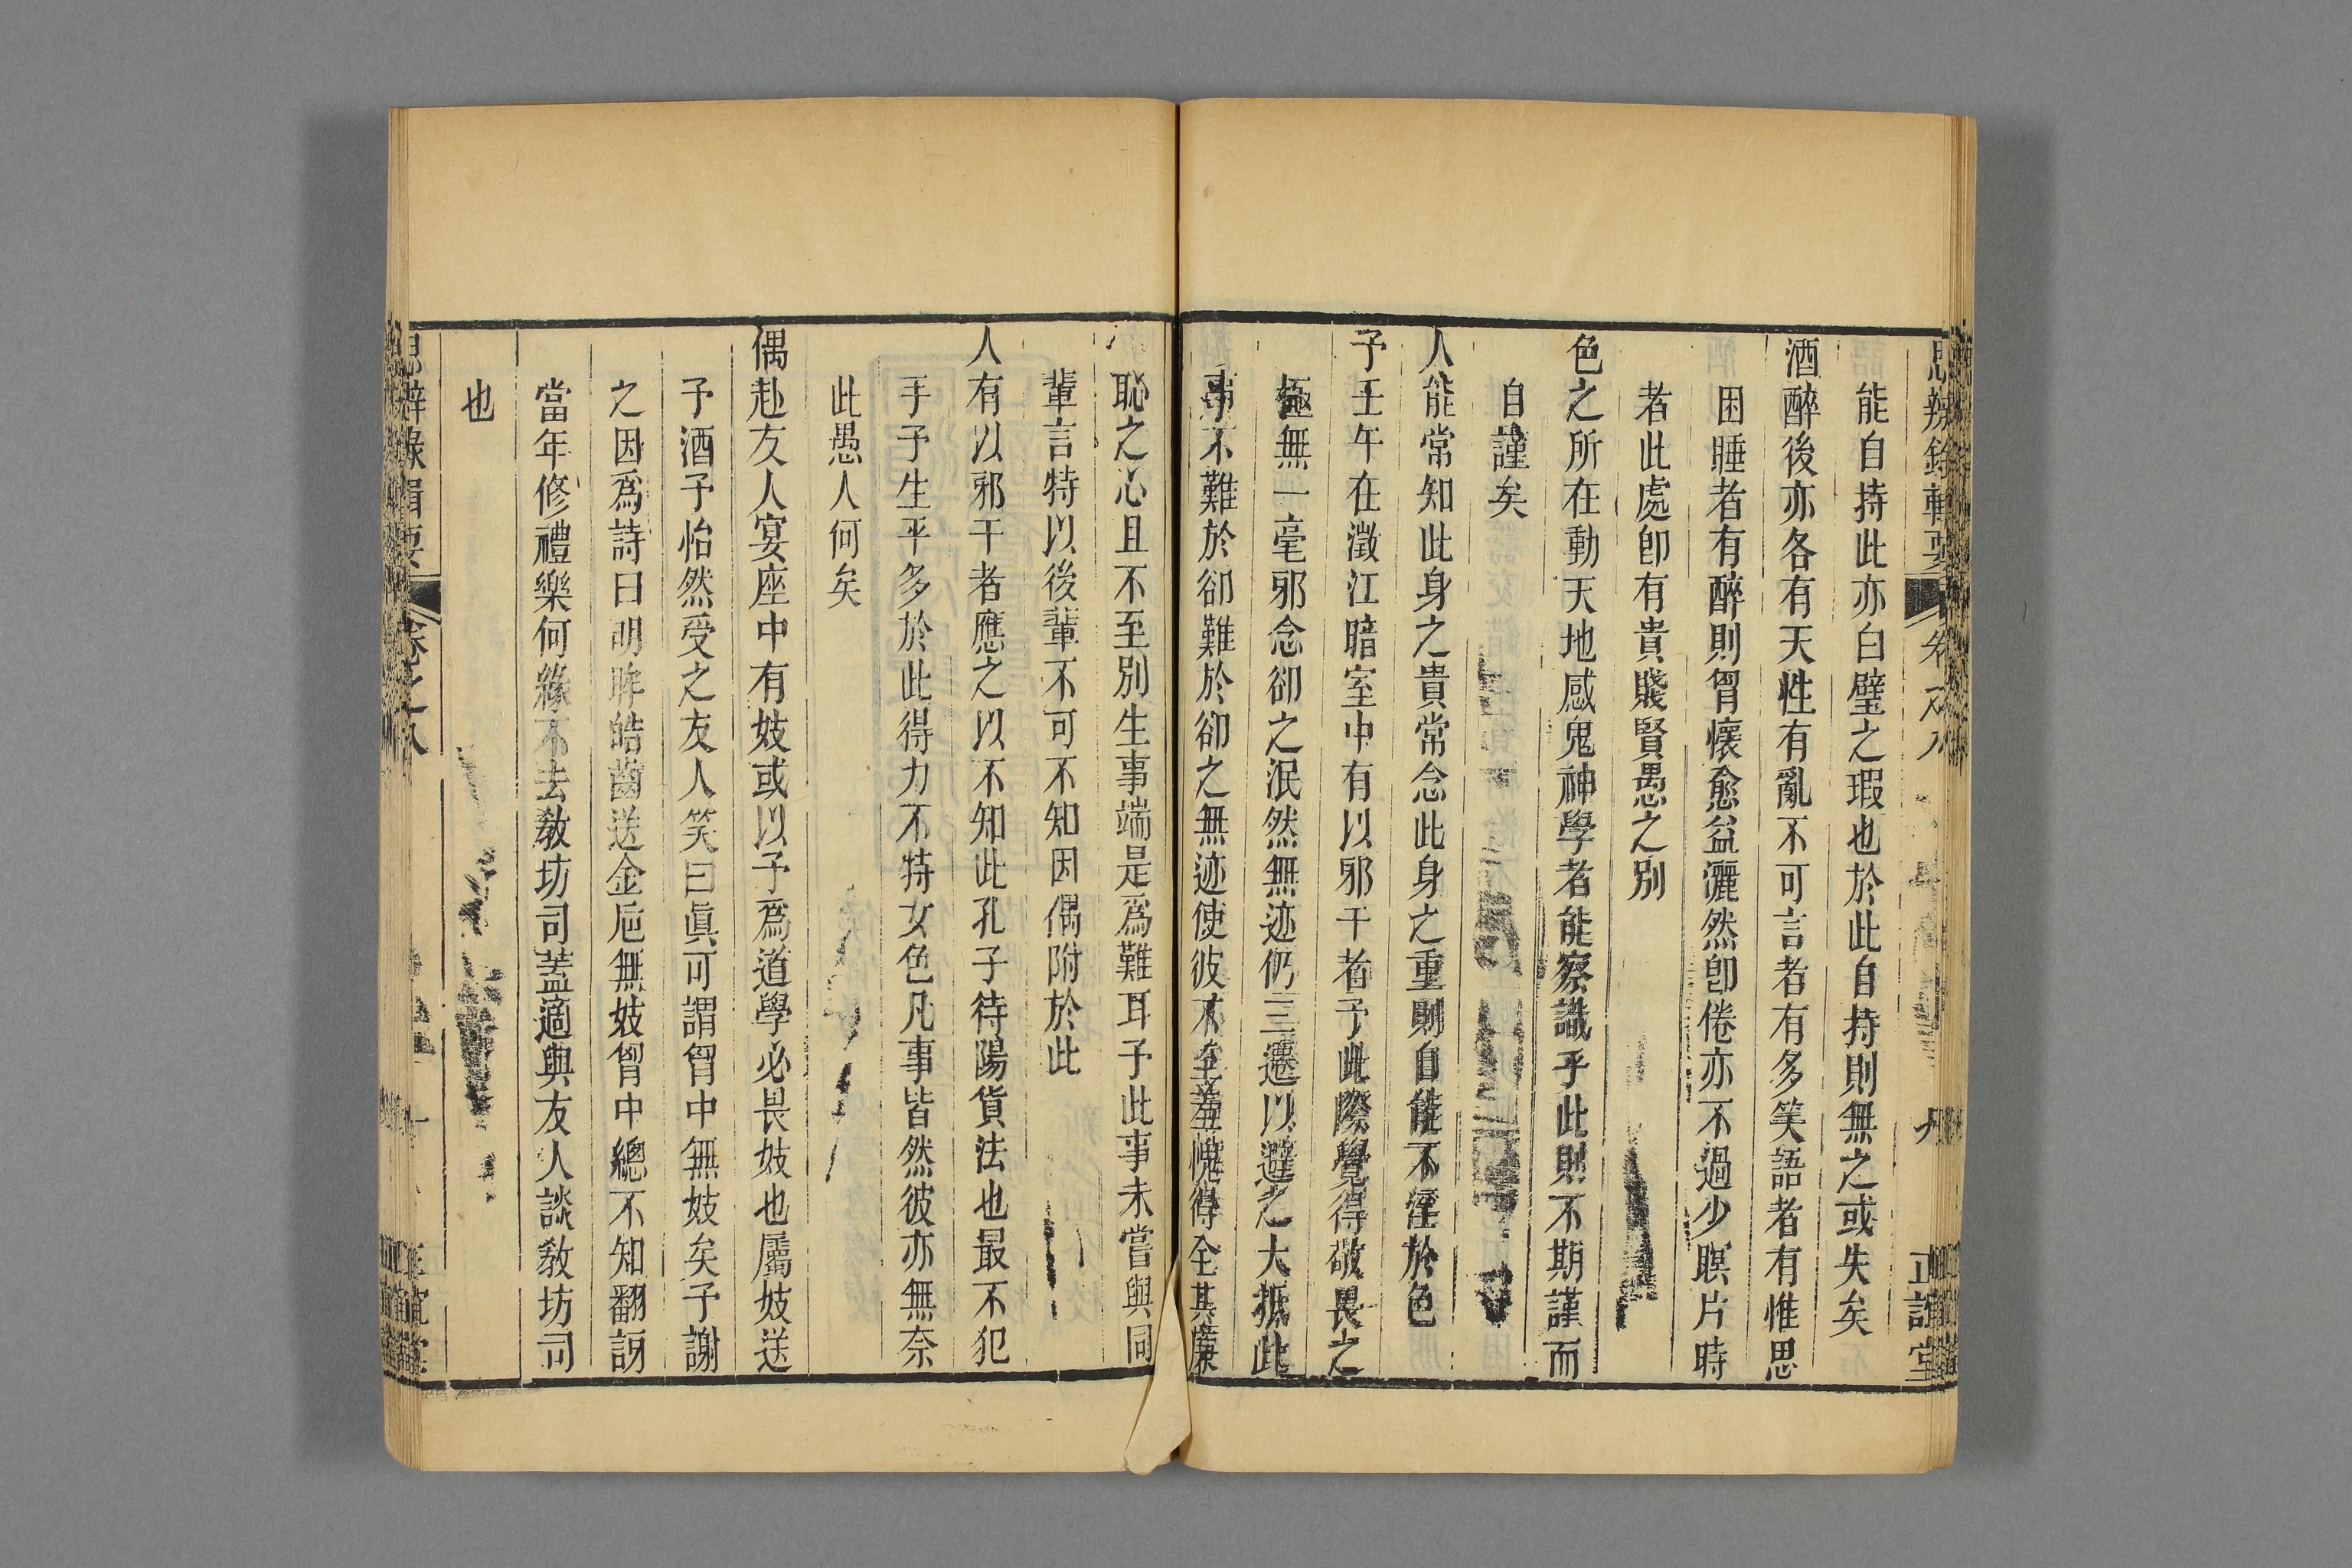 思辨錄輯要 卷之八 九 正誼堂
能自持此亦白璧之瑕也於此自持則無之或失矣
酒醉後亦各有天性有亂不可言者有多笑語者有惟思
困睡者有醉則胷懷愈益灑然卽倦亦不過少瞑片時
者此處卽有貴賤賢愚之別
色之所在動天地感鬼神學者能察識乎此則不期謹而
自謹矣
人能常知此身之貴常念此身之重則自能不淫於色
予壬午在澂江暗室中有以邪干者予此際覺得敬畏之
極無一毫邪念卻之泯然無迹仍三遷以避之大抵此
事不難於卻難於卻之無迹使彼不至羞愧得全其廉
恥之心且不至別生事端是爲難耳予此事未嘗與同
輩言特以後輩不可不知因偶附於此
人有以邪干者應之以不知此孔子待陽貨法也最不犯
手予生平多於此得力不特女色凡事皆然彼亦無奈
此愚人何矣
偶赴友人宴座中有妓或以予爲道學必畏妓也屬妓送
予酒予怡然受之友人笑曰眞可謂胷中無妓矣予謝
之因爲詩曰明眸皓齒送金巵無妓胷中總不知翻訝
當年修禮樂何緣不去教坊司蓋適與友人談教坊司
也
思辨錄輯要 卷之八 十 正誼堂